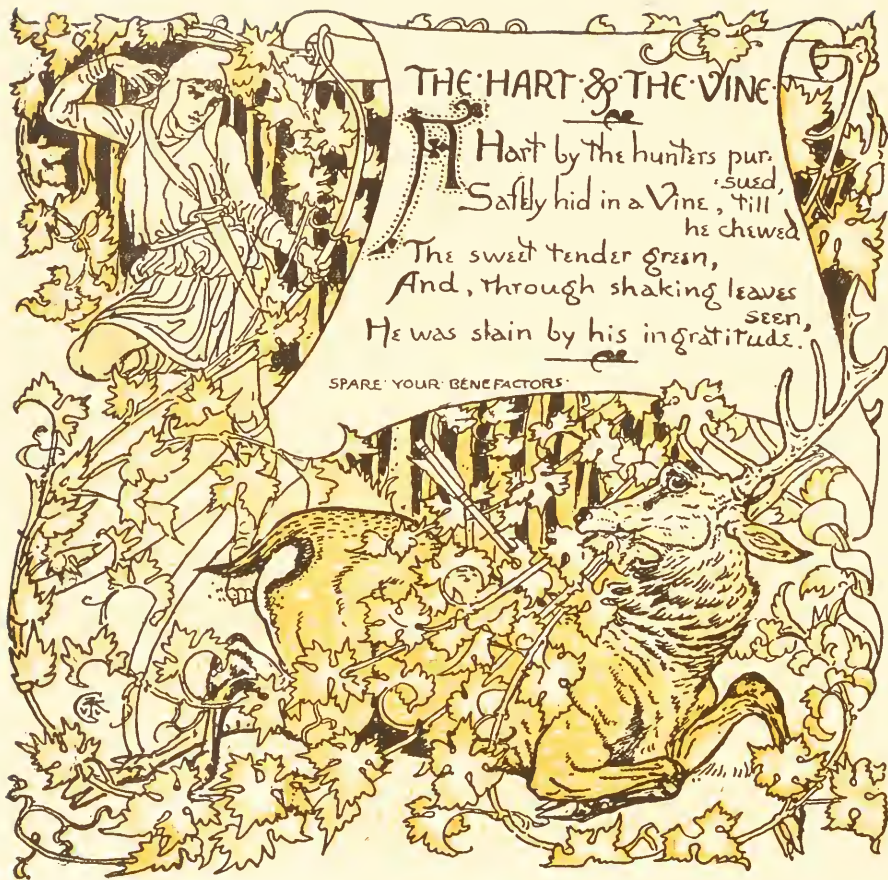 THE·HART·&·THE·VINE
A Hart by the hunters pur-
sued,
Safely hid in a Vine, 'till
he chewed
The sweet tender green,
And, through shaking leaves
seen,
He was slain by his ingratitude.
SPARE·YOUR·BENEFACTORS·